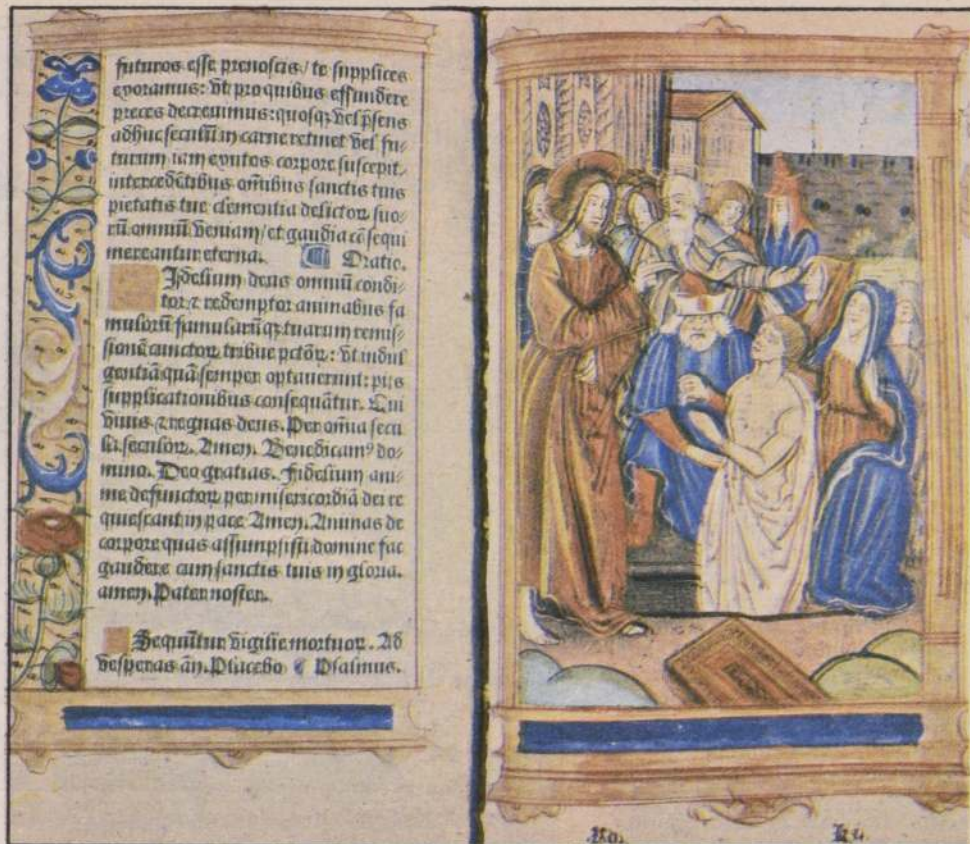 futuros esse prenoscis / te supplices
exoramus: vt pro quibus effundere
preces decreuimus: quosq; vel p̃sens
adhuc seculũ in carne retinet vel fu⸗
turum iam exutos corpore suscepit,
intercedẽtibus oĩbus sanctis tuis
pietatis tue clementia delictoꝝ suo⸗
rũ omniũ veniam / et gaudia cõsequi
mereantur eterna. Oratio.
Fidelium deus omniũ condi⸗
tor ⁊ redemptor animabus fa
mulorũ famularũq; tuarum remis⸗
sionẽ cunctoꝝ tribue pctõꝝ: vt indul
gentiã quã semper optauerunt: piis
supplicationibus consequãtur. Qui
viuis ⁊ regnas deus. Per omĩa secu
la seculoꝝ. Amen. Benedicamꝰ do⸗
mino. Deo gratias. Fidelium ani⸗
me defunctoꝝ per misericordiã dei re
quiescant in pace Amen. Animas de
corpore quas assumpsisti domine fac
gaudere cum sanctis tuis in gloria.
amen. Pater noster.
Sequũtur vigilie mortuoꝝ. Ad
vesperas añ. Placebo Psalmus.